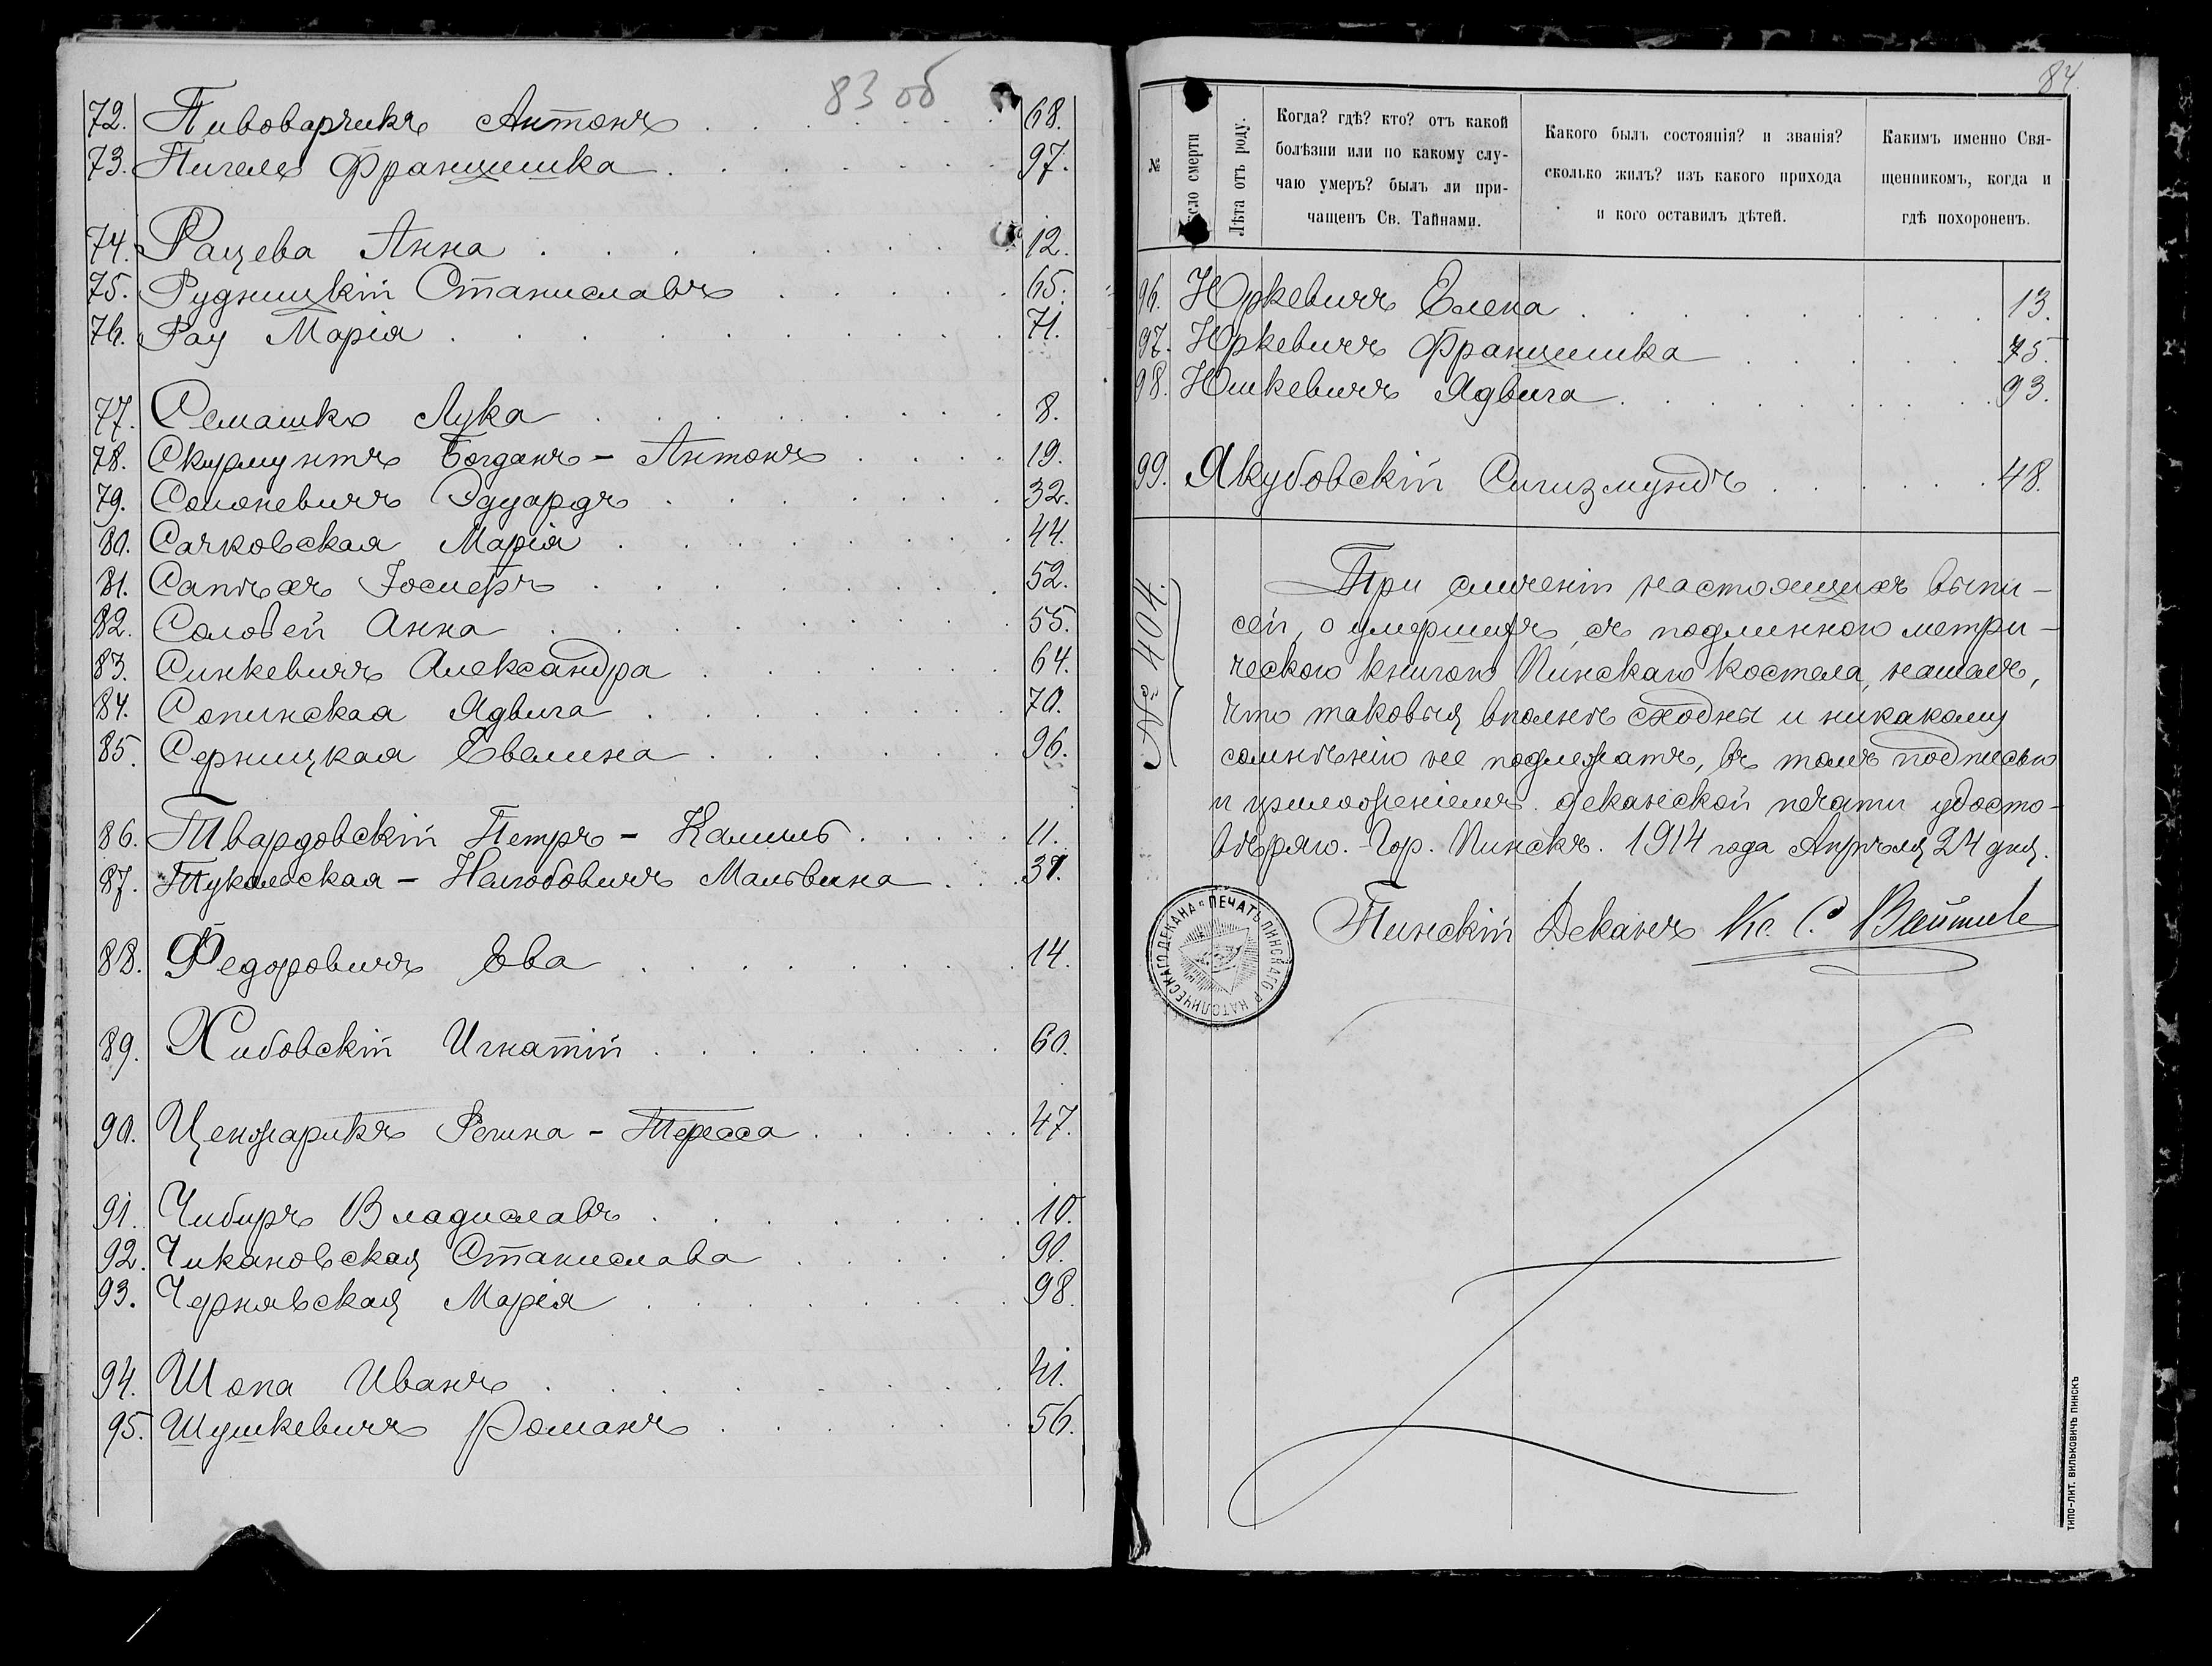 83 об
72. Пивоварчикъ Антонъ . . . . . . . 68.
73. Пигель Францишка . . . . . . 97.
74. Рацева Анна . . . . . . . 12.
75. Рудницкій Станиславъ . . . . . 65.
76. Рау Марія . . . . . . . . 71.
77. Семашко Лука . . . . . . . 8.
78. Скирмунтъ Богданъ - Антонъ . . . . 19.
79. Солоневичъ Эдуардъ . . . . . . 32.
80. Сачковская Марія . . . . . . . 44.
81. Сапѣха Іосифъ . . . . . . . 52.
82. Соловей Анна . . . . . . . 55.
83. Синкевичъ Александра . . . . . . 64.
84. Сопинская Ядвига . . . . . . . 70.
85. Серницкая Евелина . . . . . . 96.
86. Твардовскій Петръ - Камиль . . . . . 11.
87. Тукальская - Нелюбовичъ Мальвина . . . 31.
88. Федоровичъ Ева . . . . . . . 14.
89. Хибовскій Игнатій . . . . . . . . 60.
90. Ценжарикъ Регина - Тересса . . . . . . 47.
91. Чибиръ Владиславъ . . . . . . . 10.
92. Чикановская Станислава . . . . . 90.
93. Чернявская Марія . . . . . . . . 98.
94. Шопа Иванъ . . . . . . . . 41.
95. Шушкевичъ Романъ . . . . . . 56.
84.
№
Число смерти
Лѣта отъ роду.
Когда? гдѣ? кто? отъ какой
болѣзни или по какому слу-
чаю умеръ? былъ ли при-
чащенъ Св. Тайнами.
Какого былъ состоянія? и званія?
сколько жилъ? изъ какого прихода
и кого оставилъ дѣтей.
Какимъ именно Свя-
щенникомъ, когда и
гдѣ похороненъ.
96. Юркевичъ Елена . . . . . . . . 13.
97. Юркевичъ Францишка . . . . . 75.
98. Юшкевичъ Ядвига . . . . . . . . 93.
99. Якубовскій Сигизмундъ . . . . . . 48.
№ 404.
При сличеніи настоящихъ выпи-
сей, о умершихъ, съ подлинною метри-
ческою книгою Пинскаго костела, нашелъ,
что таковыя вполнѣ сходны и никакому
сомнѣнію не подлежатъ, въ томъ подписью
и приложеніемъ деканской печати удосто-
вѣряю. Гор. Пинскъ. 1914 года Апрѣля 24 дня.
Пинскій Деканъ Кс. С.
ПЕЧАТЬ ПИНСКАГО Р КАТОЛИЧЕСКАГО ДЕКАНА
ТИПО-ЛИТ. ВИЛЬКОВИЧЪ ПИНСКЪ